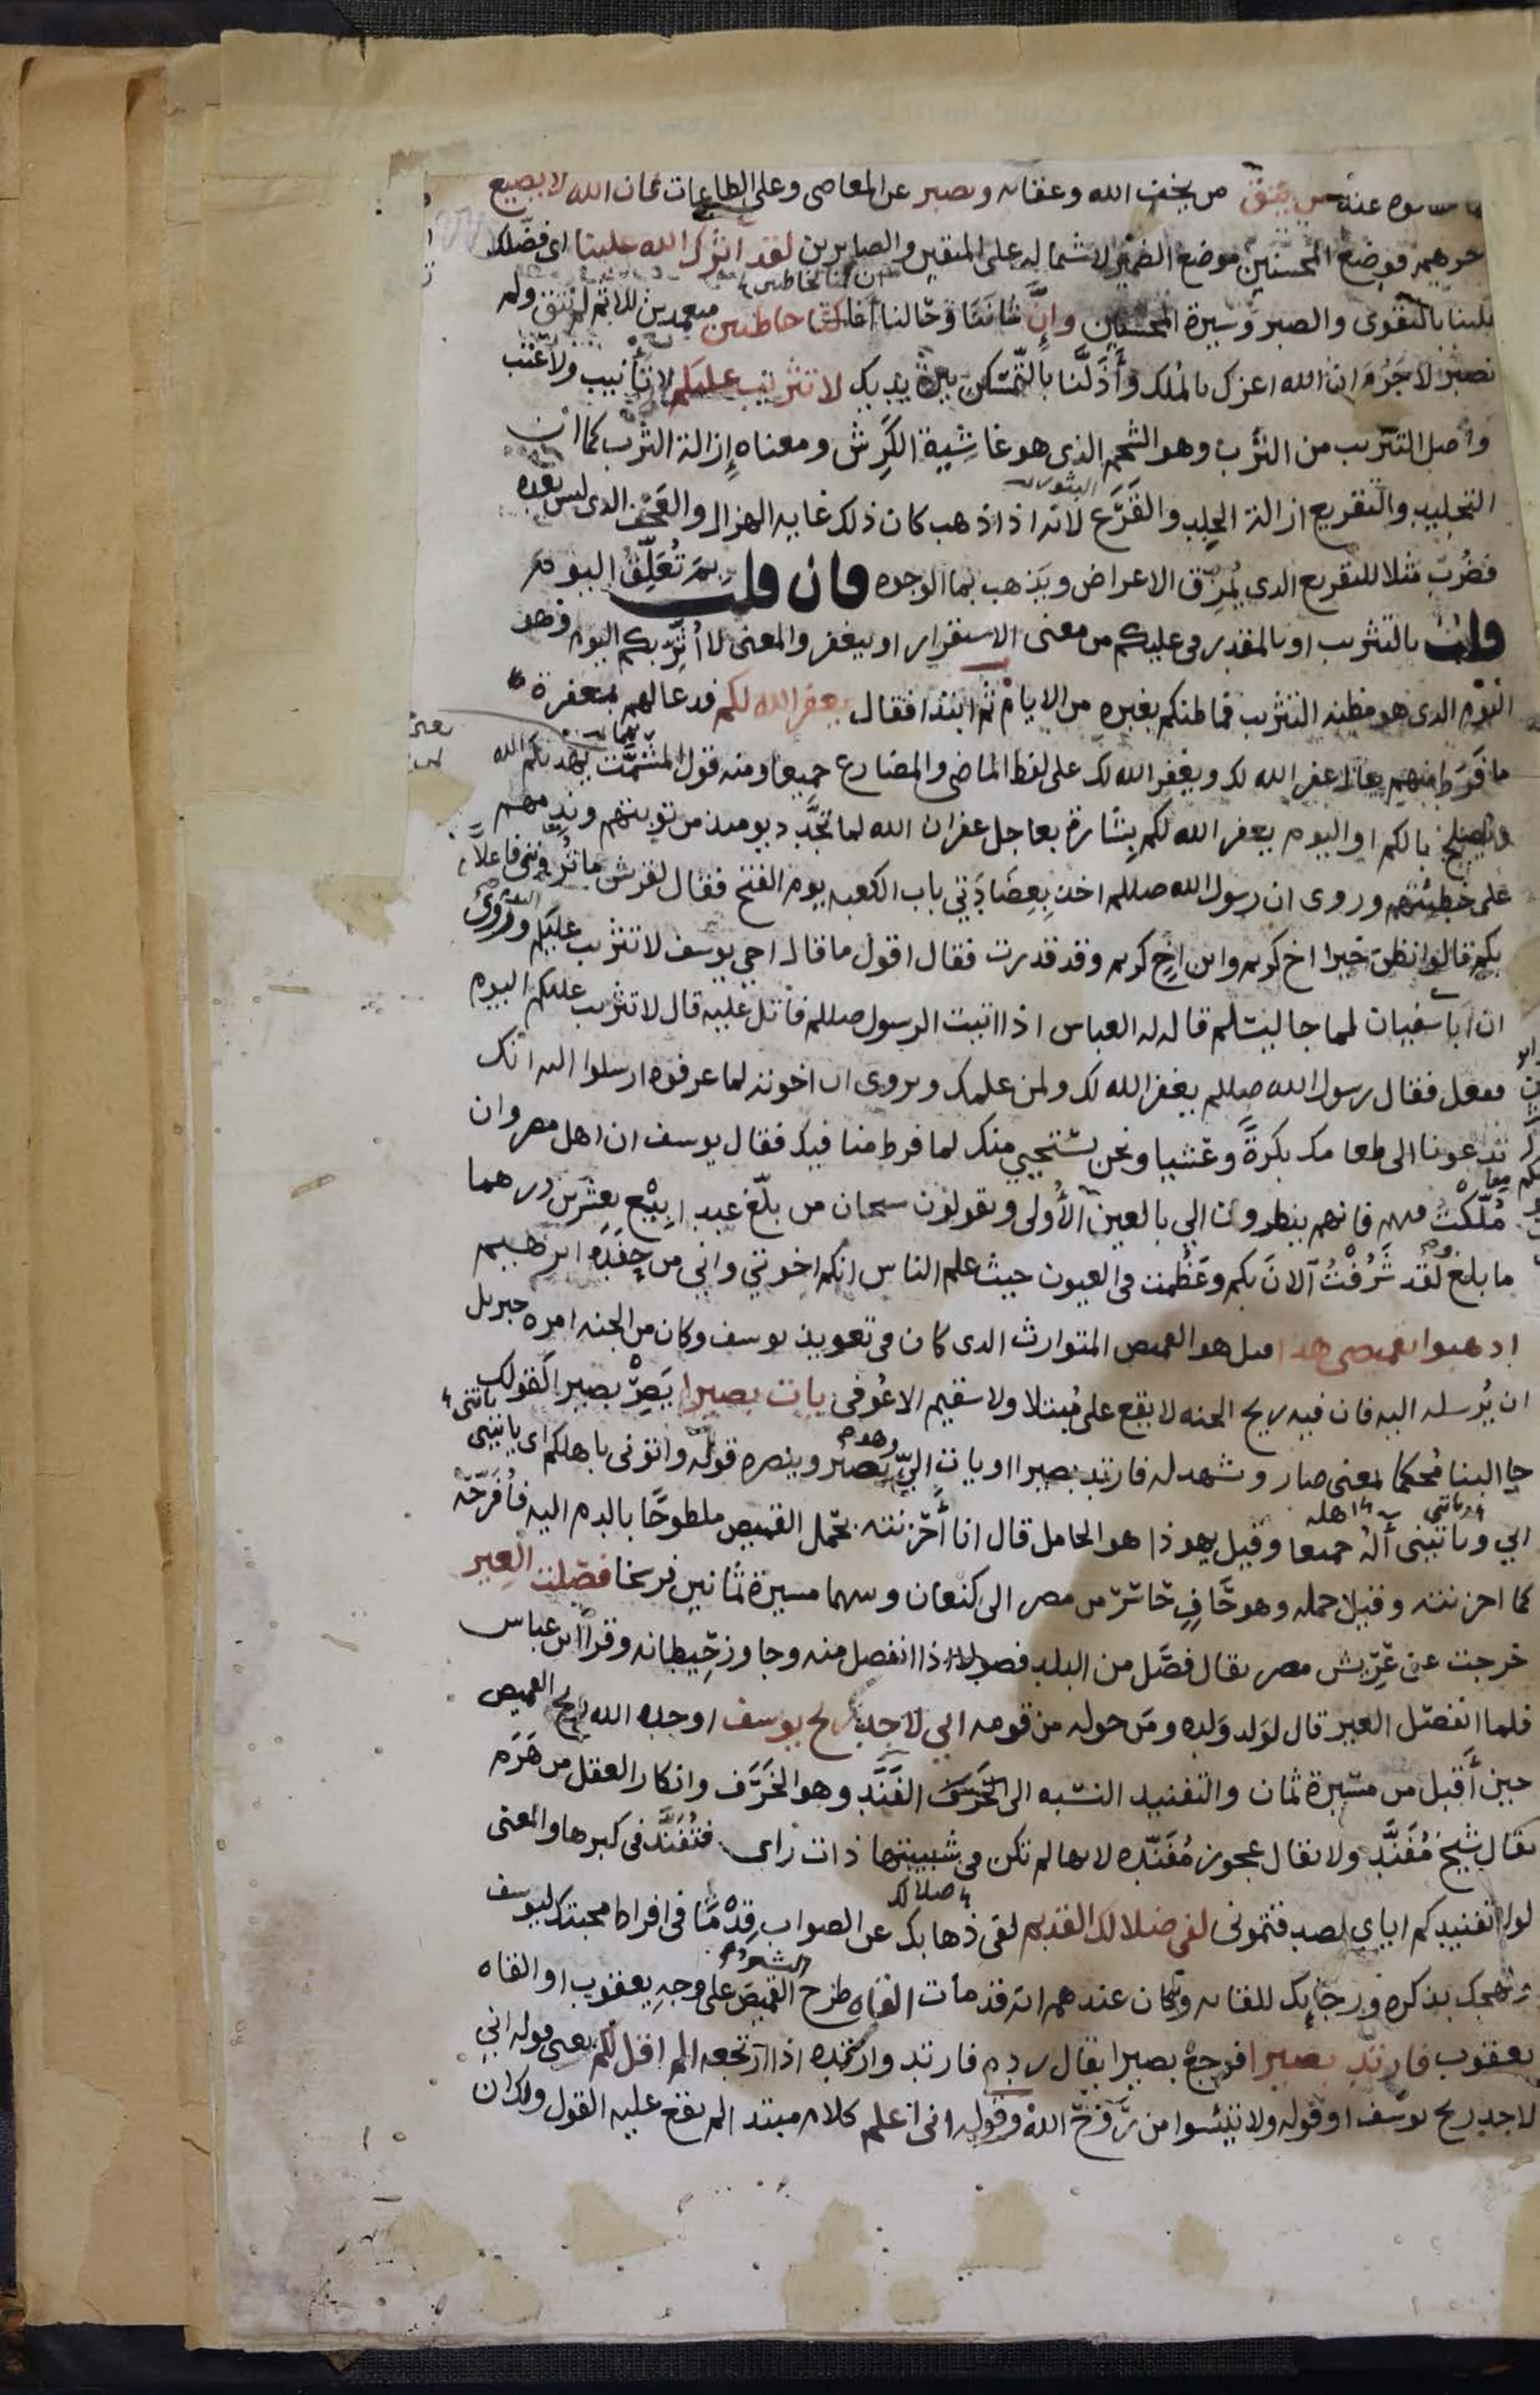 عنه من يتق من يخف الله وعقابه ويصبر عن المعاصي وعلى الطاعات فان الله لا يضيع
اجرهم فوضع المحسنين موضع الضمير لاشتماله على المتقين والصابرين لقد آثرك الله علينا اي فضلك
علينا بالتقوى والصبر وسيرة المحسنين وإنّ شأننا وحالنا أنا كنا خاطئين متعمدين للاثم لم نتق ولم
نصبر لا جرم ان الله اعزك بالملك وأذلّنا بالتمسكن بين يديك لا تثريب عليكم لا تأنيب ولا عتب
واصل التثريب من الثرب وهو الشحم الذي هو غاشية الكرش ومعناه إزالة الثرب كما ان
التجليد والتقريع ازالة الجلد والقرع لانه اذا ذهب كان ذلك غايه الهزال والعجف الدي ليس بعده
فضُرب مثلا للتقريع الدي يُمزق الاعراض ويذهب بماالوجوه فان قلت بمَ تعلّق اليوم
قلت بالتثريب او بالمقدر في عليكم من معنى الاستقرار او بيغفر والمعنى لا أُثرّبكم اليوم وهو
اليوم الدي هو مظنه التثريب فما ظنكم بغيره من الايام ثم ابتدا فقال يغفر الله لكم فدعا لهم بمغفرة
ما فرط منهم يقال غفر الله لك ويغفر الله لك على لفظ الماضي والمضارع جميعا ومنه قول المشمّت يهديكم الله
ويصلح بالكم او اليوم يغفر الله لكم بشارة بعاجل غفران الله لما تجدّد يومىذ من توبتهم وندمهم
على خطيئتهم وروى ان رسول الله صللم اخذ بعضادَتي باب الكعبه يوم الفتح فقال لقريش ما ترونني فاعلاً
بكم قالوا نظن خيرا اخ كريم وابن اخٍ كريم وقد قدرت فقال اقول ما قال اخي يوسف لا تثريب عليكم اليوم وروى
ان ابا سفيان لما جا ليسلم قال له العباس اذا اتيت الرسول صللم فاتل عليه قال لا تثريب عليكم اليوم
ففعل فقال رسول الله صللم يغفر الله لك ولمن علمك ويروى ان اخوته لما عرفوه ارسلوا اليه انك
تدعونا الى طعامك بكرةً وعشيا ونحن نستحيي منك لما فرط منا فيك فقال يوسف ان اهل مصر وان
مُلّكتُ فيهم فانهم ينظرون الي بالعين الأولى ويقولون سبحان من بلّغ عبدا بِيْع بعشرين درهما
ما بلغ ولقد شَرُفْتُ الآن بكم وعَظُمت في العيون حيث علم الناس انكم اخوتي واني من حفَدَه ابرهيم
اذهبوا بقميصي هذا قيل هو القميص المتوارث الدي كان في تعويذ يوسف وكان من الجنه امره جبريل
ان يُرسله اليه فان فيه ريح الجنه لا يقع على مُبتلا ولا سقيم الا عُوفي يات بصيرا يَصِرْ بصيرا كقولك
جا البنا مُحكما بمعنى صار وشهد له فارتد بصيرا او يات اليّ وهو بصير وينصره قوله واتوني باهلكم اي يأتيني
ابي وياتيني آله جميعا وقيل يهوذا هو الحامل قال انا أحزنته بحمل القميص ملطوخًا بالدم اليه فأفرّحه
كما احزنته وقيل حمله وهو حَافٍ حَاسر من مصر الى كنعان وبينهما مسيرة ثمانين فرسخا فصَلت العير
خرجت عن عَريش مصر يقال فصَل من البلد فصولا اذا انفصل منه وجاوز حِيطانه وقرأ ابن عباس
فلما انفصل العير قال لولد وَلده ومَن حوله من قومه اني لاجد ريح يوسف اوجده الله ريح القميص
حين أقبل من مسيرة ثمان والتفنيد النسبه الى الفَنَد وهو الخَرَف وانكار العقل من هَرَم
يقال شيخ مُفَنَّد ولا يقال عجوز مُفَنَّده لانها لم تكن في شبيبتها ذات راي فتُفَنَّد في كبرها والمعنى
لولا تفنيدكم اياي لصدقتموني لفي ضلالك القديم لفي ذهابك عن الصواب قِدْمًا في افراط محبتك ليوسف
ولهجك بذكره ورجايك للقائه وكان عندهم انه قد مات القاه طرح البشير القميص على وجه يعقوب او القاه
يعقوب فارتد بصيرا فرجع بصيرا يقال رده فارتد وارتده اذا ارتجعه الم اقل لكم يعني قوله اني
لاجد ريح يوسف او قوله ولا تيئسوا من رَوْح الله وقوله اني اعلم كلام مبتدا لم يقع عليه القول ولك ان